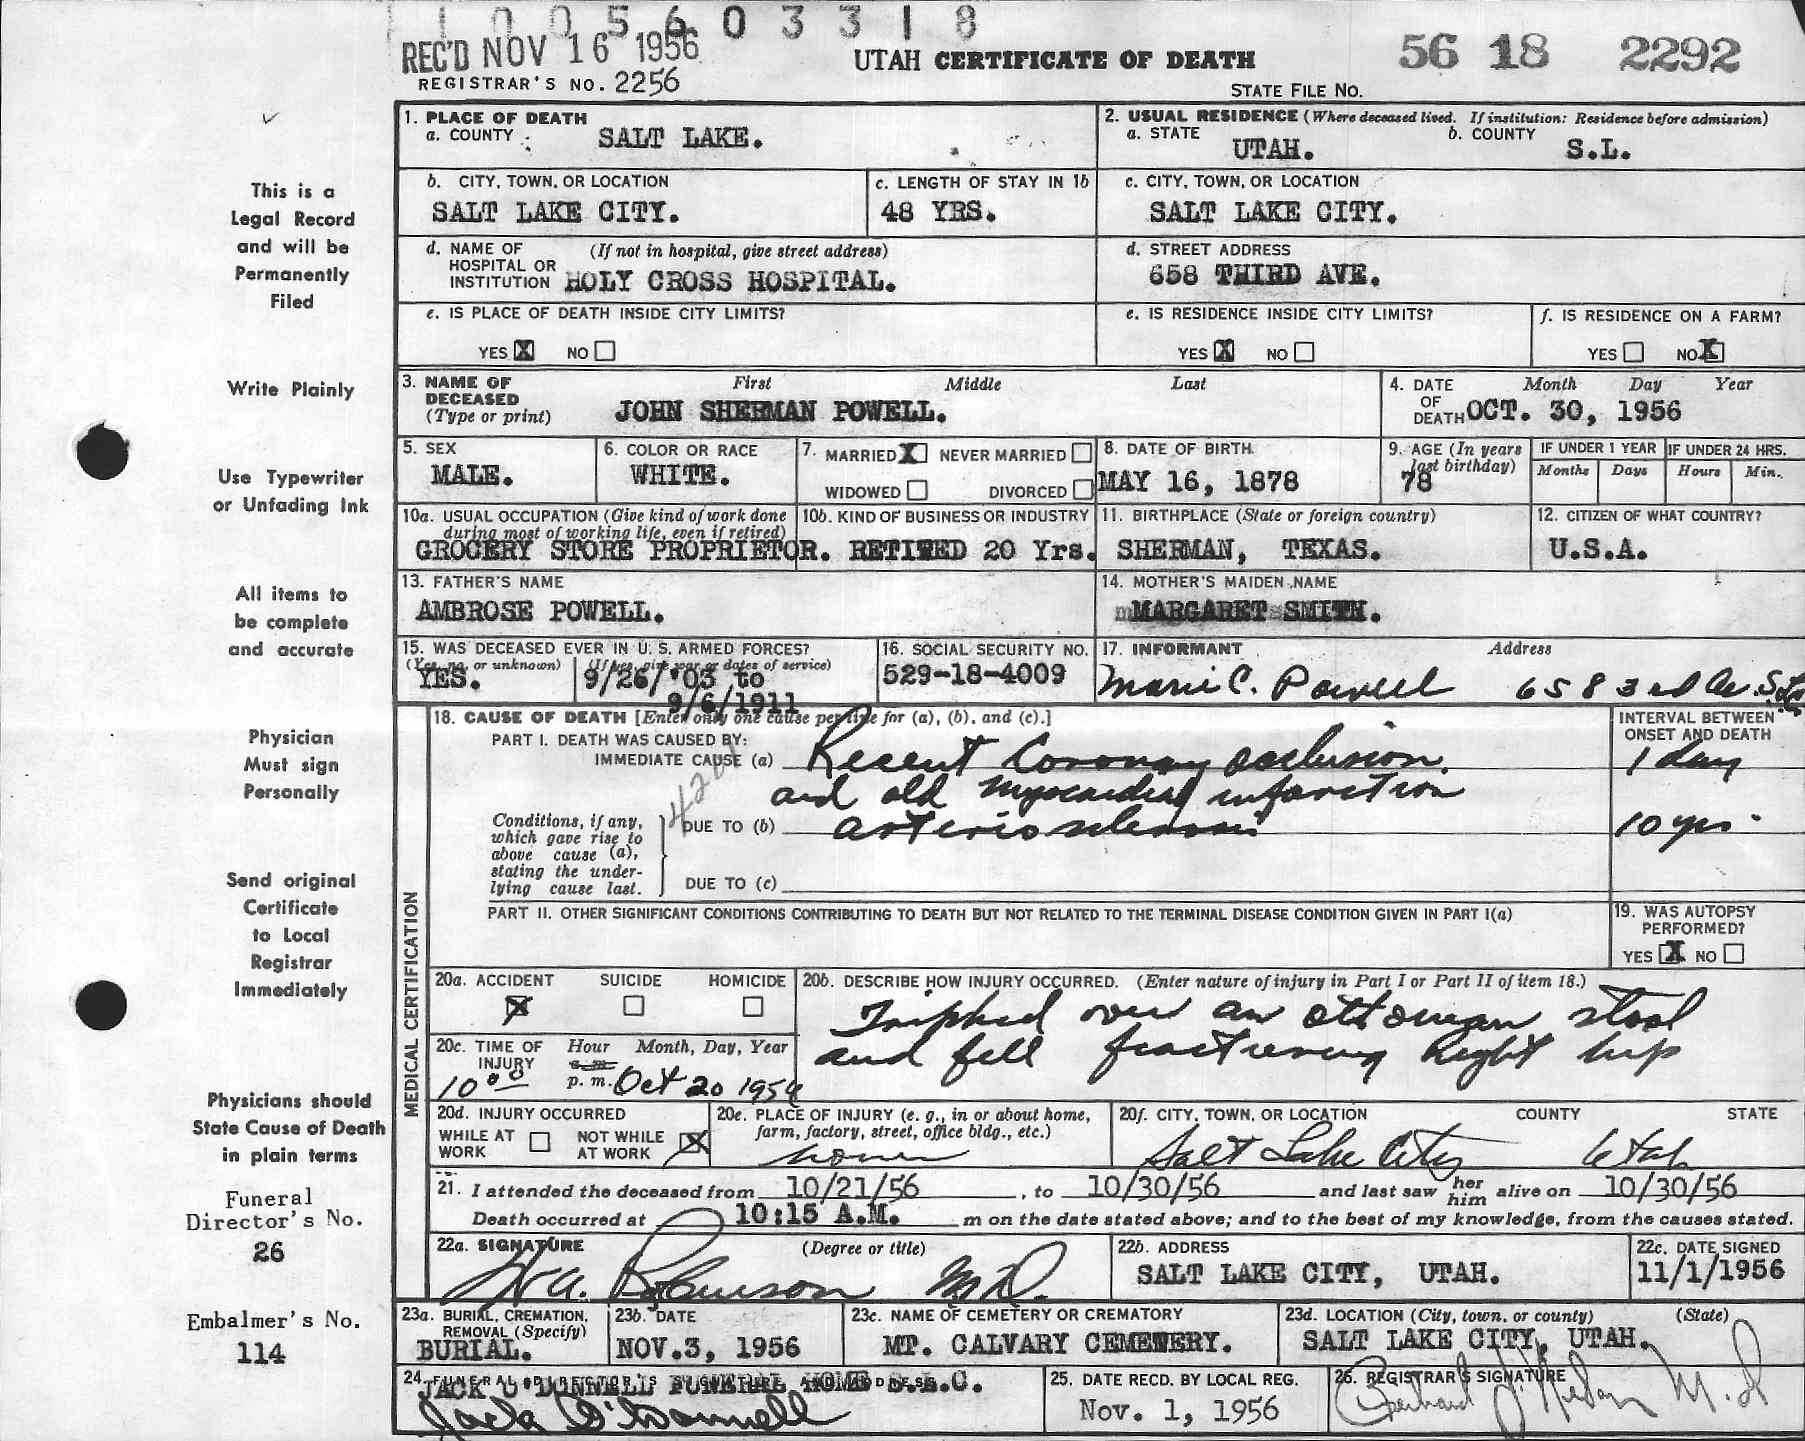 1 0 0 5 6 0 3 3 1 8
REC'D NOV 16 1956
REGISTRAR'S NO. 2256
UTAH CERTIFICATE OF DEATH
56 18 2292
STATE FILE NO.
This is a
Legal Record
and will be
Permanently
Filed
Write Plainly
Use Typewriter
or Unfading Ink
All items to
be complete
and accurate
Physician
Must sign
Personally
Send original
Certificate
to Local
Registrar
Immediately
Physicians should
State Cause of Death
in plain terms
Funeral
Director's No.
26
Embalmer's No.
114
1. PLACE OF DEATH
a. COUNTY SALT LAKE.
2. USUAL RESIDENCE (Where deceased lived. If institution: Residence before admission)
a. STATE UTAH. b. COUNTY S.L.
b. CITY, TOWN, OR LOCATION
SALT LAKE CITY.
c. LENGTH OF STAY IN 1b
48 YRS.
c. CITY, TOWN, OR LOCATION
SALT LAKE CITY.
d. NAME OF HOSPITAL OR INSTITUTION (If not in hospital, give street address)
HOLY CROSS HOSPITAL.
d. STREET ADDRESS
658 THIRD AVE.
e. IS PLACE OF DEATH INSIDE CITY LIMITS?
YES X NO
e. IS RESIDENCE INSIDE CITY LIMITS?
YES X NO
f. IS RESIDENCE ON A FARM?
YES NO X
3. NAME OF DECEASED (Type or print) First Middle Last
JOHN SHERMAN POWELL.
4. DATE OF DEATH Month Day Year
OCT. 30, 1956
5. SEX
MALE.
6. COLOR OR RACE
WHITE.
7. MARRIED X NEVER MARRIED
WIDOWED DIVORCED
8. DATE OF BIRTH
MAY 16, 1878
9. AGE (In years last birthday)
78
IF UNDER 1 YEAR
Months Days
IF UNDER 24 HRS.
Hours Min.
10a. USUAL OCCUPATION (Give kind of work done during most of working life, even if retired)
GROCERY STORE PROPRIETOR.
10b. KIND OF BUSINESS OR INDUSTRY
RETIRED 20 Yrs.
11. BIRTHPLACE (State or foreign country)
SHERMAN, TEXAS.
12. CITIZEN OF WHAT COUNTRY?
U.S.A.
13. FATHER'S NAME
AMBROSE POWELL.
14. MOTHER'S MAIDEN NAME
MARGARET SMITH.
15. WAS DECEASED EVER IN U. S. ARMED FORCES?
(Yes, no, or unknown) (If yes, give war or dates of service)
YES. 9/26/'03 to
9/6/1911
16. SOCIAL SECURITY NO.
529-18-4009
17. INFORMANT Address
Marie C. Powell 658 3rd Av
18. CAUSE OF DEATH [Enter only one cause per line for (a), (b), and (c).]
PART I. DEATH WAS CAUSED BY:
IMMEDIATE CAUSE (a) Recent Coronary occlusion.
and old myocardial infarction
Conditions, if any, which gave rise to above cause (a), stating the underlying cause last.
DUE TO (b) arteriosclerosis
DUE TO (c)
INTERVAL BETWEEN ONSET AND DEATH
1 day
10 yrs.
PART II. OTHER SIGNIFICANT CONDITIONS CONTRIBUTING TO DEATH BUT NOT RELATED TO THE TERMINAL DISEASE CONDITION GIVEN IN PART I(a)
19. WAS AUTOPSY PERFORMED?
YES X NO
MEDICAL CERTIFICATION
20a. ACCIDENT SUICIDE HOMICIDE
X
20b. DESCRIBE HOW INJURY OCCURRED. (Enter nature of injury in Part I or Part II of item 18.)
Tripped over an ottoman stool
and fell fracturing right hip
20c. TIME OF INJURY Hour Month, Day, Year
10:00 a.m. p.m. Oct 20
20d. INJURY OCCURRED
WHILE AT WORK NOT WHILE AT WORK X
20e. PLACE OF INJURY (e. g., in or about home, farm, factory, street, office bldg., etc.)
home
20f. CITY, TOWN, OR LOCATION COUNTY STATE
Salt Lake City Utah
21. I attended the deceased from 10/21/56, to 10/30/56 and last saw her him alive on 10/30/56
Death occurred at 10:15 A.M. m on the date stated above; and to the best of my knowledge, from the causes stated.
22a. SIGNATURE (Degree or title)
Robinson M.D.
22b. ADDRESS
SALT LAKE CITY, UTAH.
22c. DATE SIGNED
11/1/1956
23a. BURIAL, CREMATION, REMOVAL (Specify)
BURIAL.
23b. DATE
NOV.3, 1956
23c. NAME OF CEMETERY OR CREMATORY
MT. CALVARY CEMETERY.
23d. LOCATION (City, town, or county) (State)
SALT LAKE CITY, UTAH.
24. FUNERAL DIRECTOR'S SIGNATURE AND ADDRESS
JACK O'DONNELL FUNERAL HOME S.L.C.
Jack O'Donnell
25. DATE RECD. BY LOCAL REG.
Nov. 1, 1956
26. REGISTRAR'S SIGNATURE